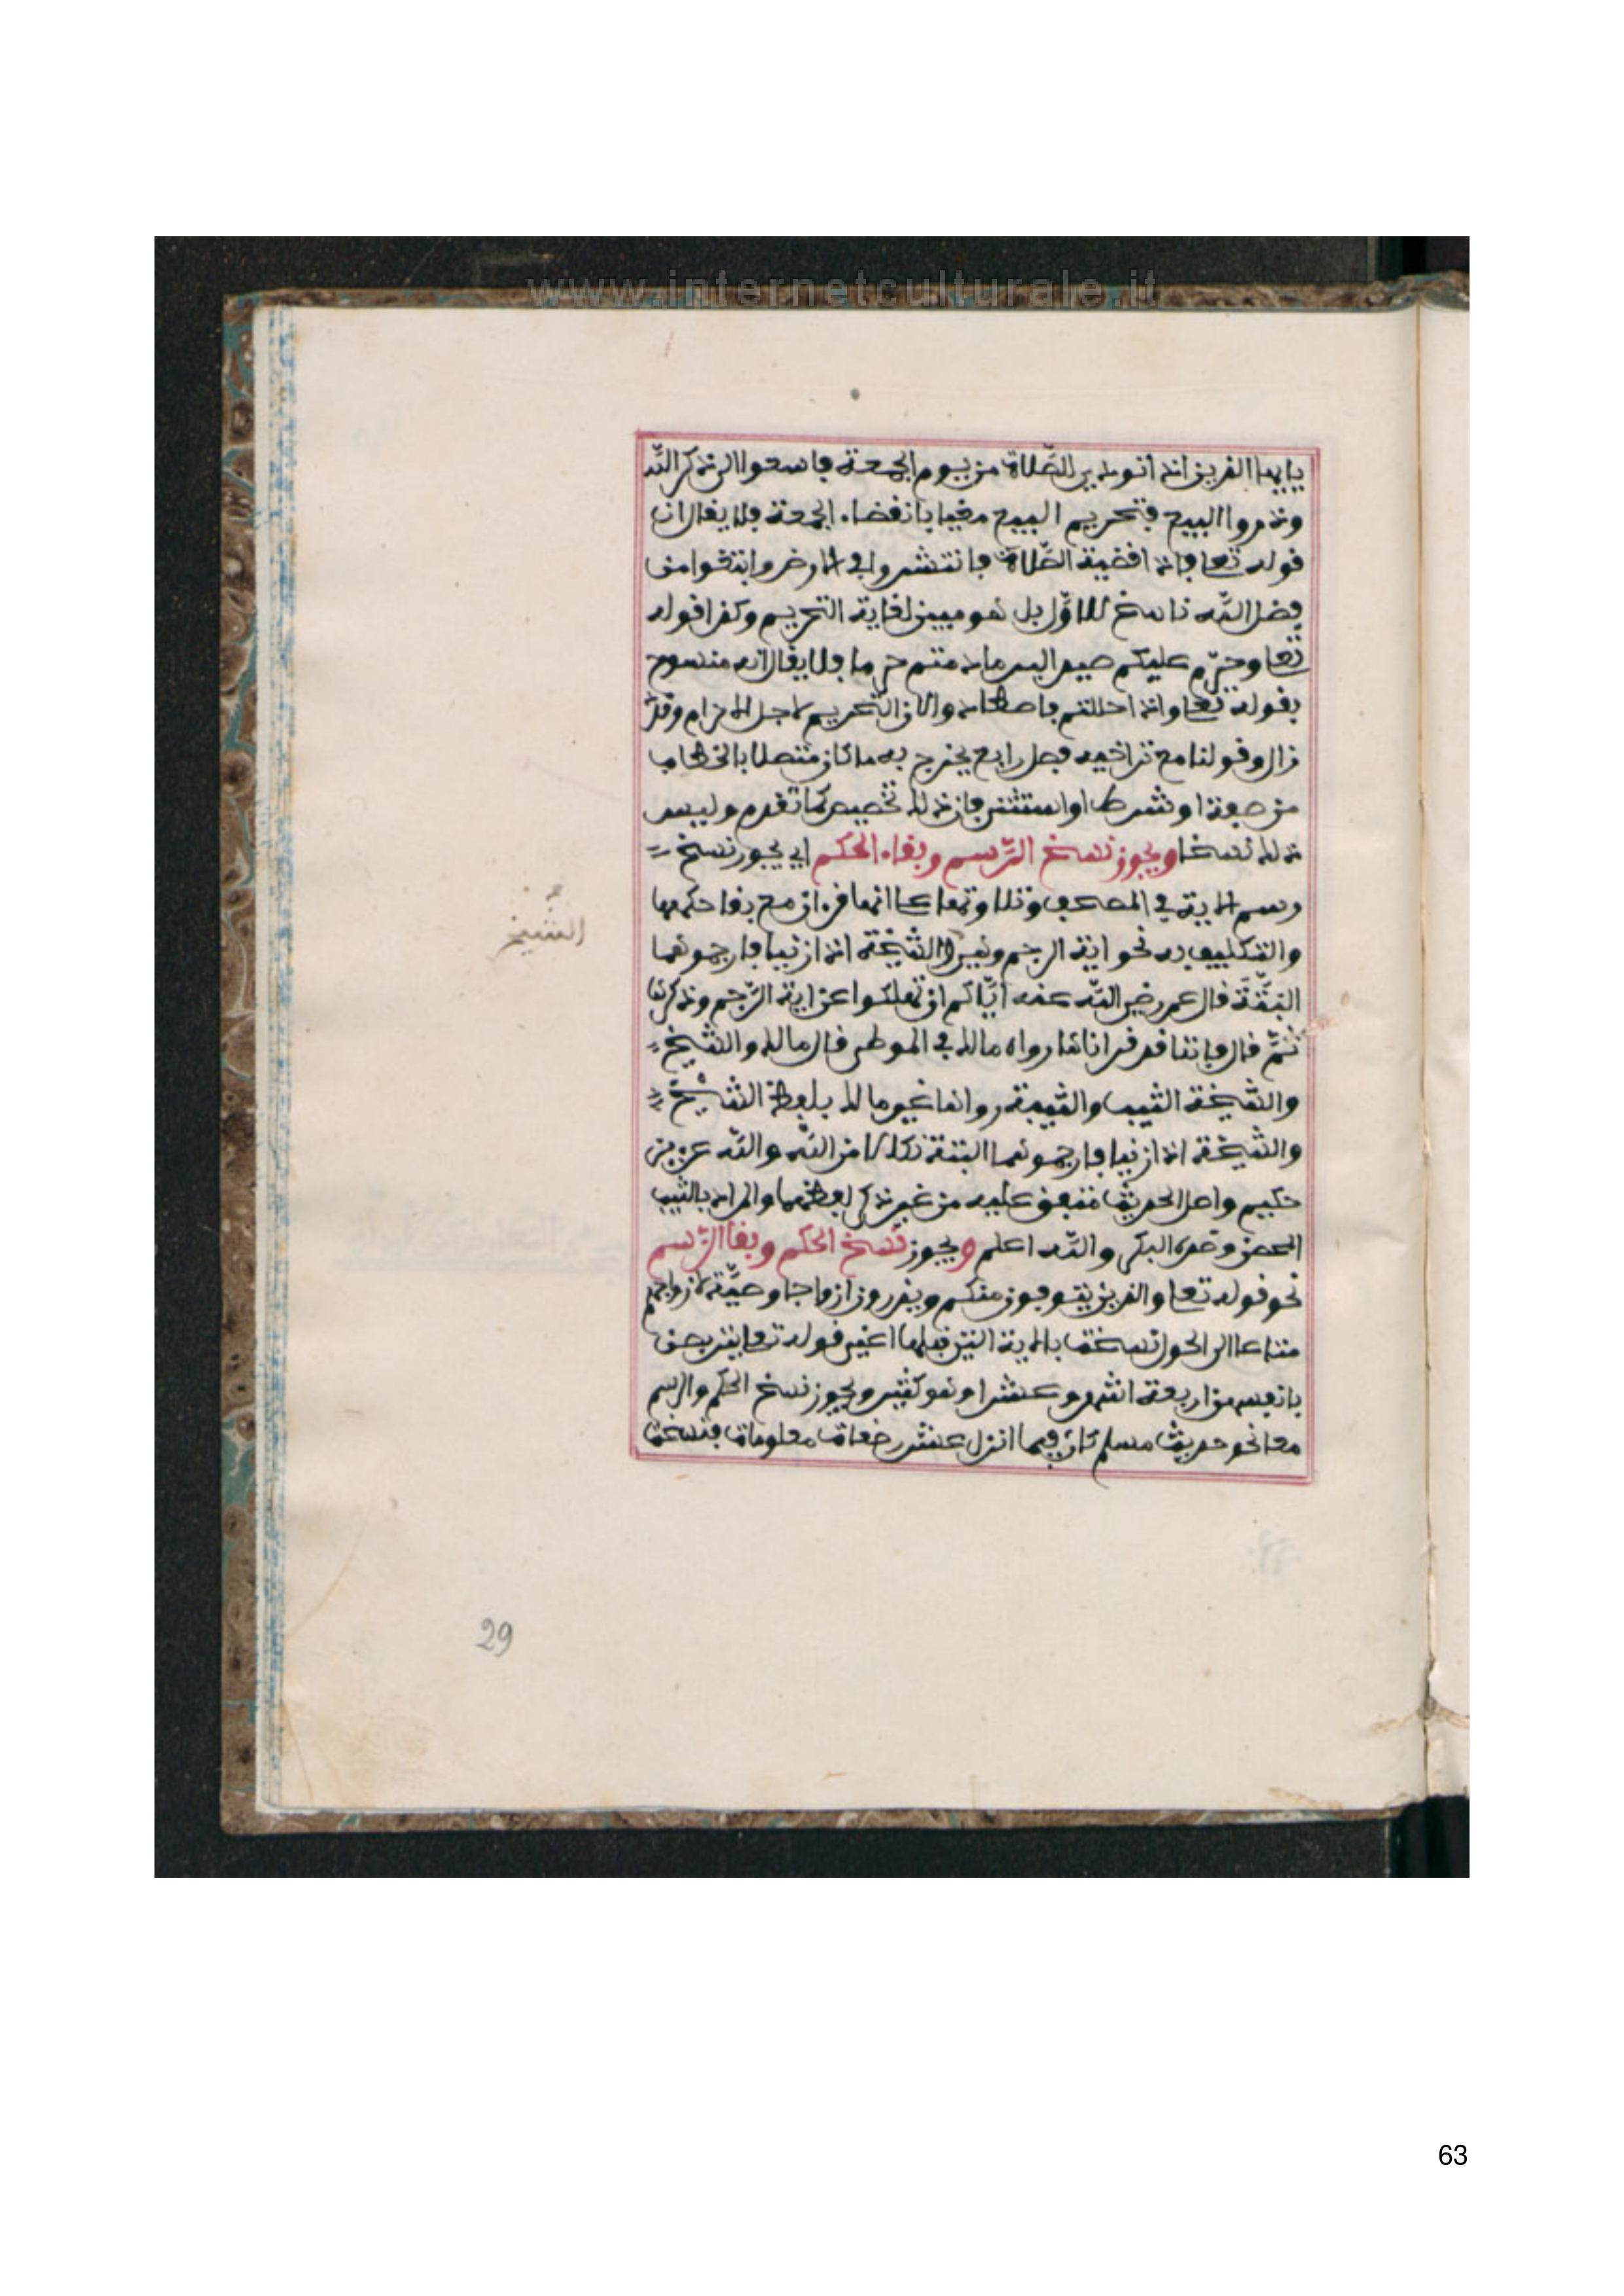 www.internetculturale.it
يايها الذين اذا نودي للصلاة من يوم الجمعة فاسعوا الى ذكر الله
وذروا البيع فتحريم البيع مغيا بانفضاء الجمعة فلا يقال ان
قوله تعا فاذا قضية الصلاة فانتشروا في الارض وابتغوا من
فضل الله ناسخ للاوّل بل هو مبين لغاية التحريم وكذا قوله
تعا وحرّم عليكم صيد البر ما دمتم حرما فلا يقال انه منسوخ
بقوله تعا واذا حللتم فاصطادوا لان التحريم لاجل الاحرام وقد
زال وقولنا مع تراخيه فصل رابع يخرج به ما كان متصلا بالخطاب
من صفة او شرط او استثنى فان ذلك تخصيص كما تقدم وليس
ذلك نسخا ويجوز نسخ الرّسم وبقاء الحكم اي يجوز نسخ
رسم الاية في المصحف وتلاوتها على انها قرءان مع بقا حكمها
والتكليف به نحو اية الرجم وهي الشيخة اذا زنيا فارجموهما
الشّيخ
البتّة قال عمر رضي الله عنه ايّاكم ان تهلكوا عن اية الرّجم وذكرها
ثمّ قال فاننا قد قراناها رواه مالك في الموطى قال مالك والشيخ
والشيخة الثيب والثيبة رواها غير مالك بلفظ الشيخ
والشيخة اذا زنيا فارجموهما البتة نكالا من الله والله عزيز
حكيم واصل الحديث متفق عليه من غير ذكر لفظهما والمراد بالثيب
المحصن وضده البكر والله اعلم ويجوز نسخ الحكم وبقا الرّسم
نحو قوله تعا والذين يتوفون منكم ويذرون ازواجا وصيّة لازواجهم
متاعا الى الحول نسخت بالاية التي قبلها اعني قوله تعا يتربصن
بانفسهن اربعة اشهر وعشرا وهو كثير ويجوز نسخ الحكم والرسم
معا نحو حديث مسلم كان فيما انزل عشر رضعات معلومات فنسخت
29
63